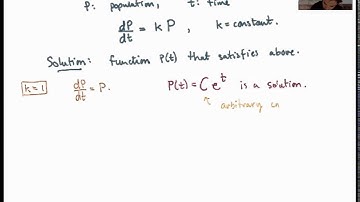 P: population, t: time
dP/dt = k P , k = constant.
Solution: function P(t) that satisfies above.
k = 1 dP/dt = P. P(t) = C e^t is a solution.
arbitrary cn